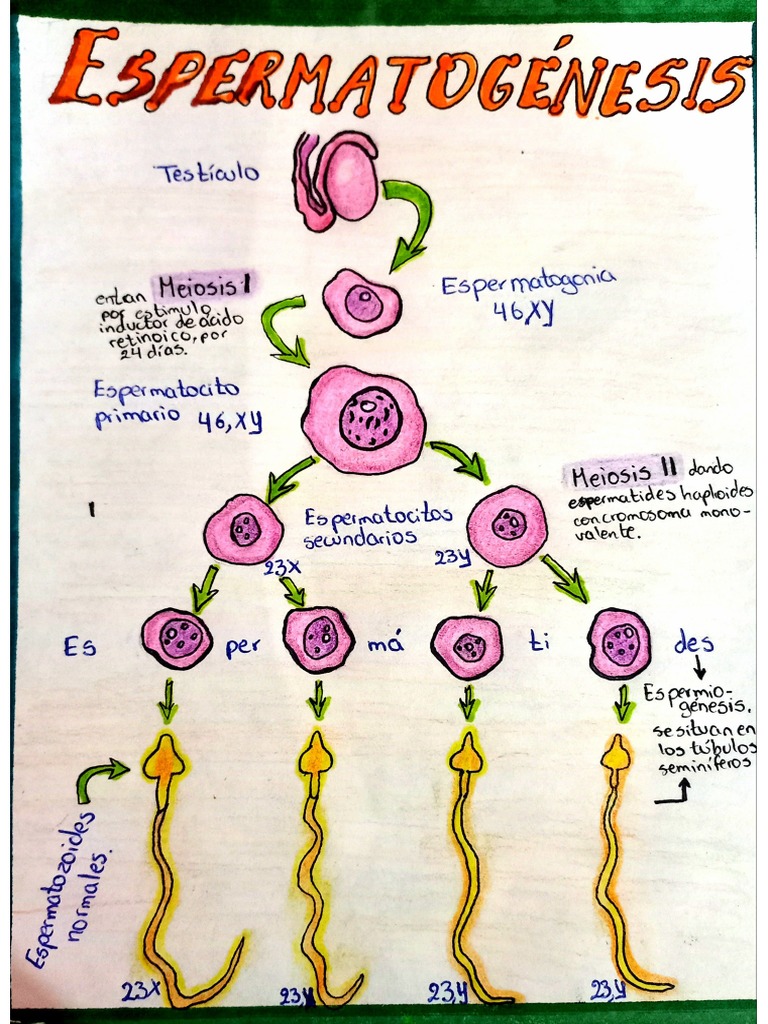 ESPERMATOGÉNESIS
Testículo
Espermatogonia
46,XY
entan Meiosis I
por estimulo
inductor de ácido
retinoico, por
24 días.
Espermatocito
primario 46,XY
Meiosis II dando
espermatides haploides
con cromosoma mono-
valente.
I
Espermatocitos
secundarios
23X
23Y
Es per má ti des
Espermio-
génesis,
se situan en
los túbulos
seminíferos
Espermatozoides
normales.
23X
23,Y
23,Y